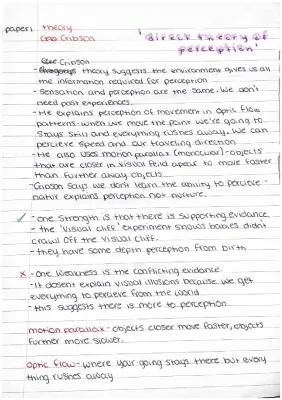 paper1 theory
Gibson
'direct theory of
perception'
Gibson
- theory suggests the environment gives us all
the information required for perception
- Sensation and perception are the same. We don't
need past experiences.
- He explains perception of movement in Optic Flow
patterns - when we move the point we're going to
Stays Still and everything rushes away. We can
percieve speed and our traveling direction
- He also uses motion parallax (monocular) - objects
that are closer in visual feild apear to move faster
than further away objects
- Gibson says we dont learn the ability to percieve -
natur explains perception not nurture.
✓ - one Strength is that there is supporting evidence.
- the 'visual cliff' experiment shows babies didnt
crawl off the visual cliff.
- they have some depth perception from birth
x - one weakness is the conflicting evidence.
- it dosent explain visual illusions because we get
everything to percieve from the world
- this suggests there is more to perception
motion parallax - objects closer move faster, objects
further move slower.
optic flow - where your going stays there but every
thing rushes away